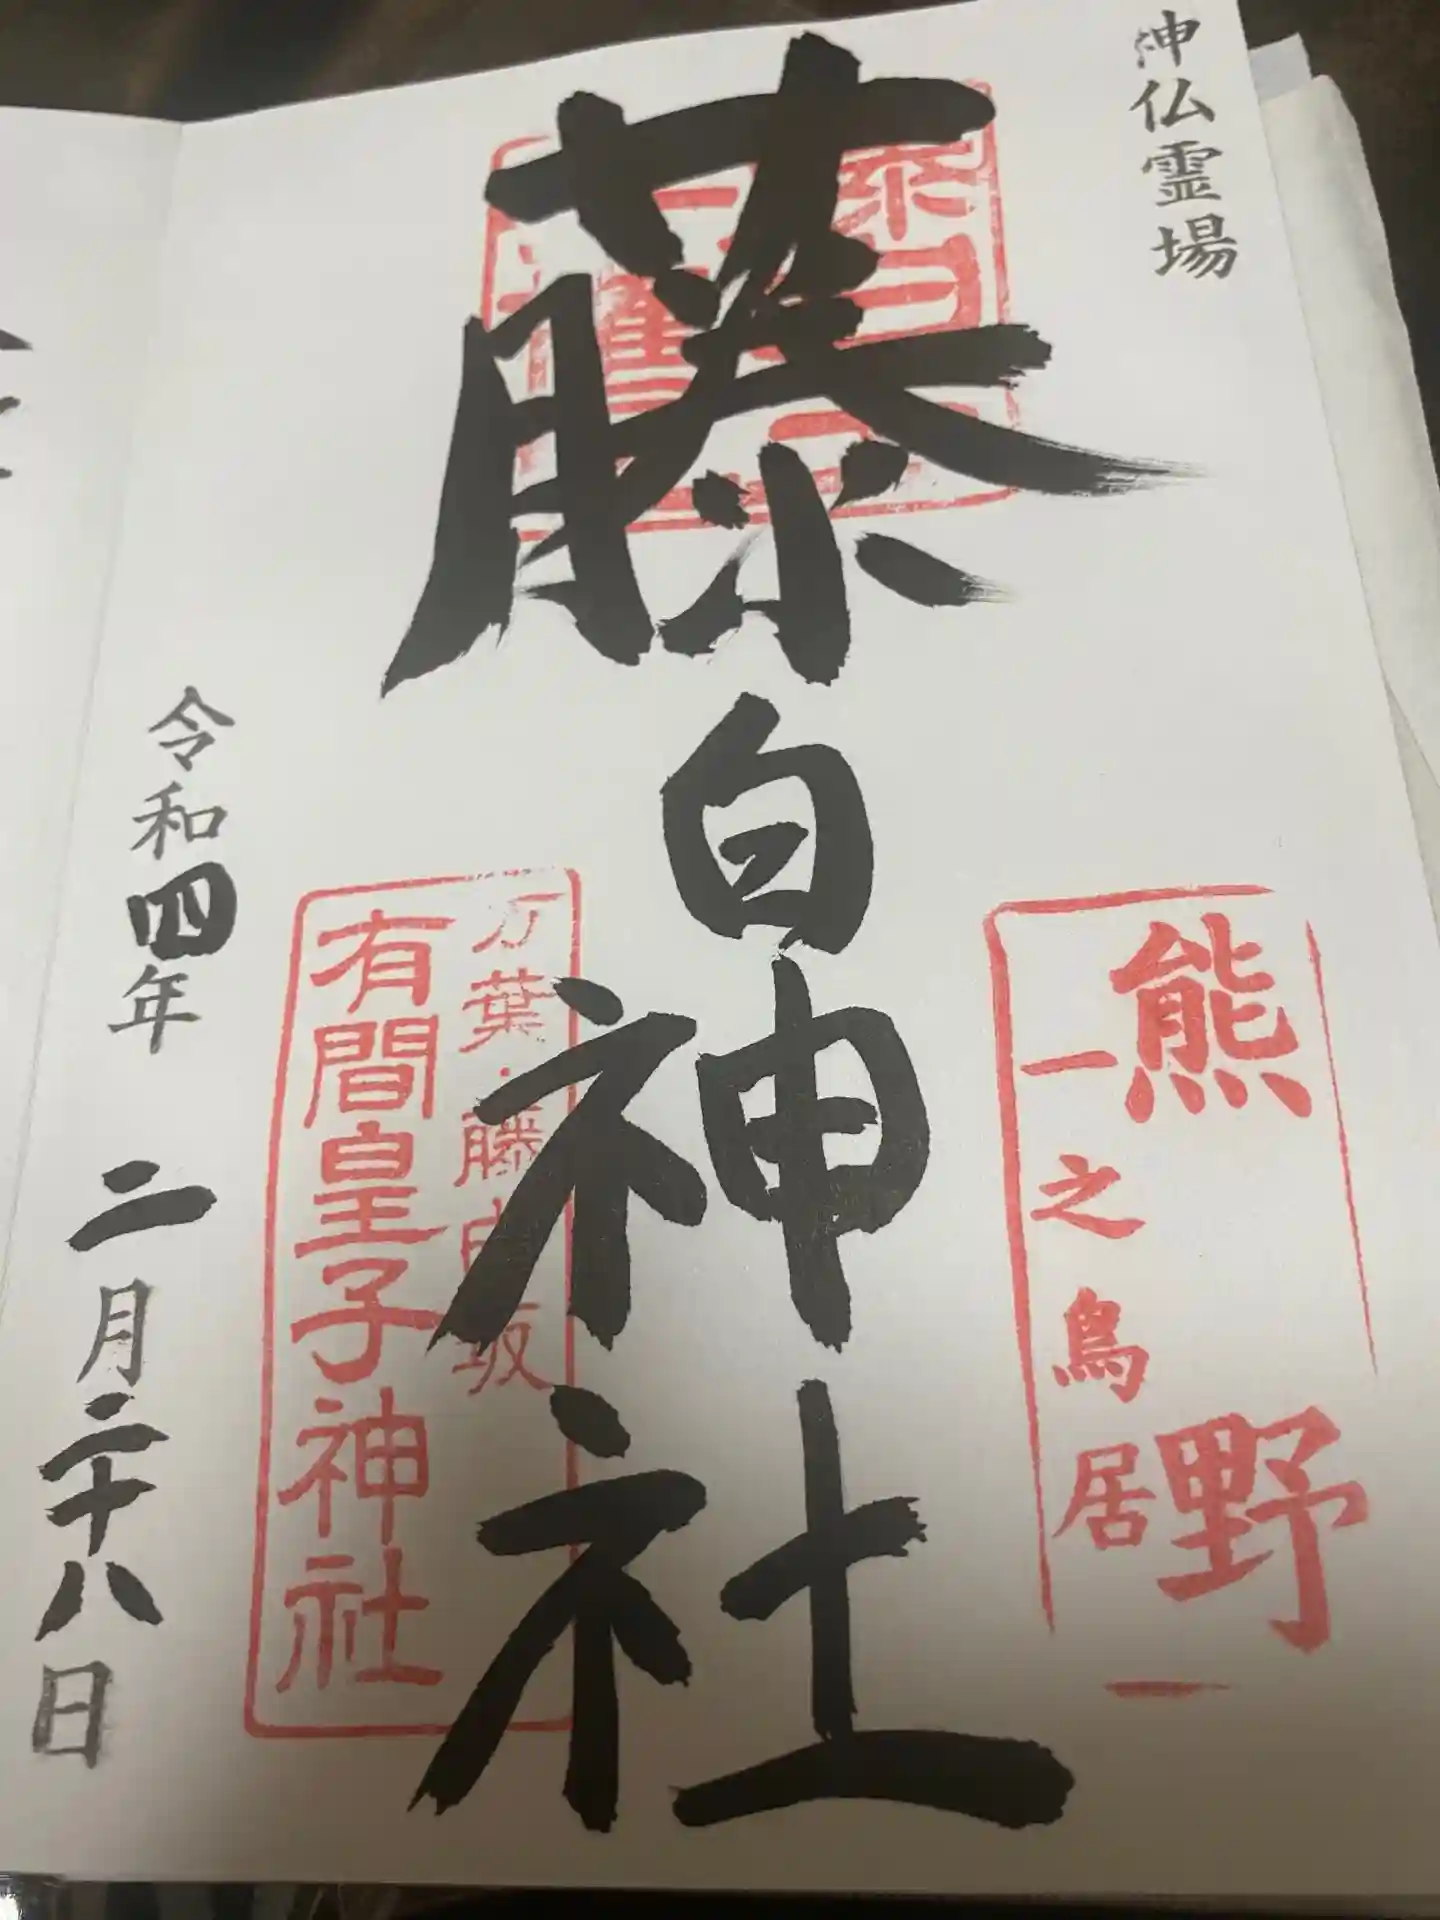 神仏霊場
熊野
一之鳥居
藤白神社
万葉・藤白坂
有間皇子神社
令和四年 二月二十八日